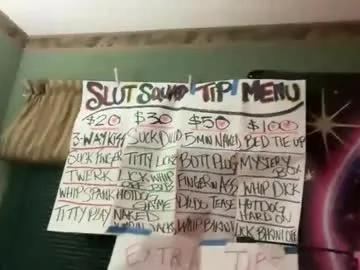 SLUT SQUAD TIP MENU
$20 $30 $50 $100
3-WAY KISS SUCK DILDO 5 MIN NAKED BED TIE UP
SUCK FINGER TITTY LICK BOTT PLUG MYSTERY BOX
TWERK LICK WHIP FINGER IN ASS WHIP DICK
WHIP SPANK HOTDOG DILDO TEASE HOTDOG HARD ON
TITTY PLAY NAKED WHIP BIKINI BIKINI OFF
EXTR TIP-